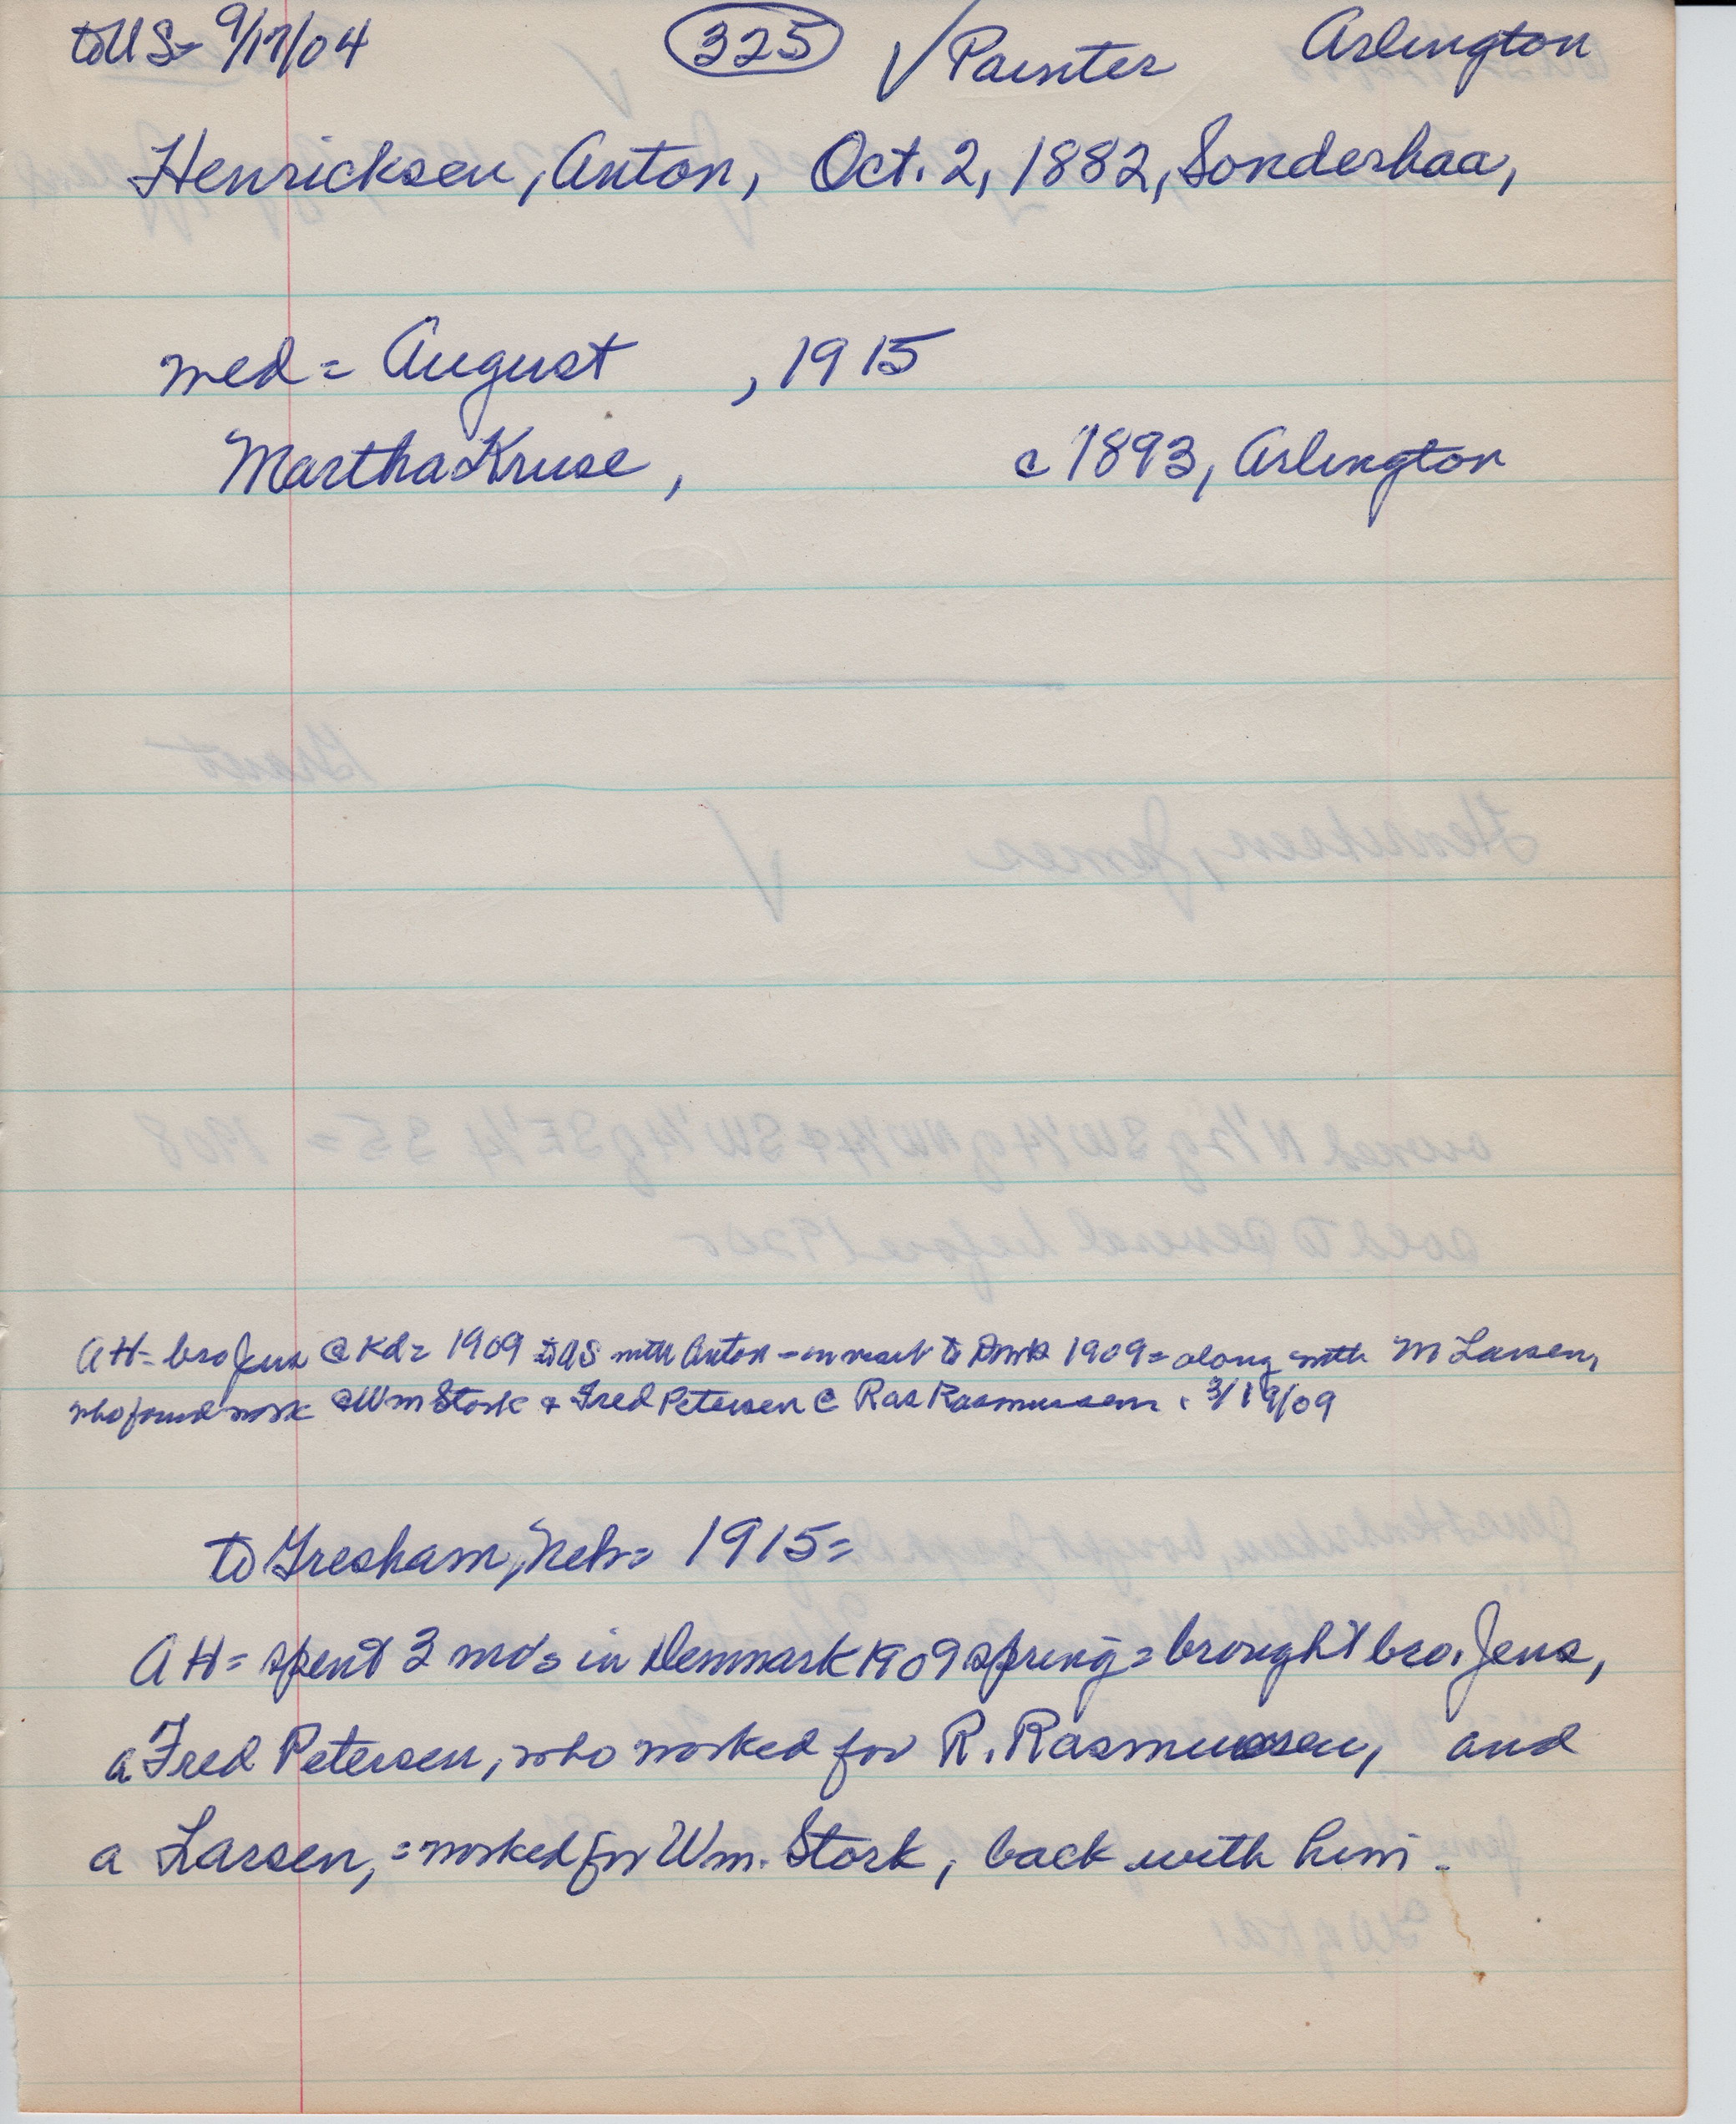 to US= 9/17/04 325 √ Painter Arlington
Henricksen, Anton, Oct. 2, 1882, Sonderhaa,
med = August , 1915
Martha Kruse, c 1893, Arlington
AH= bro Jens @ Kd= 1909 to US with Anton = on visit to Dmk 1909= along with M Larsen,
who found work @ Wm Stork & Fred Petersen @ Ras Rasmussen. 3/19/09
to Gresham, Neb= 1915=
AH= spent 3 mo's in Denmark 1909 spring= brought bro. Jens,
a Fred Petersen, who worked for R. Rasmussen, and
a Larsen, = worked for Wm. Stork, back with him.